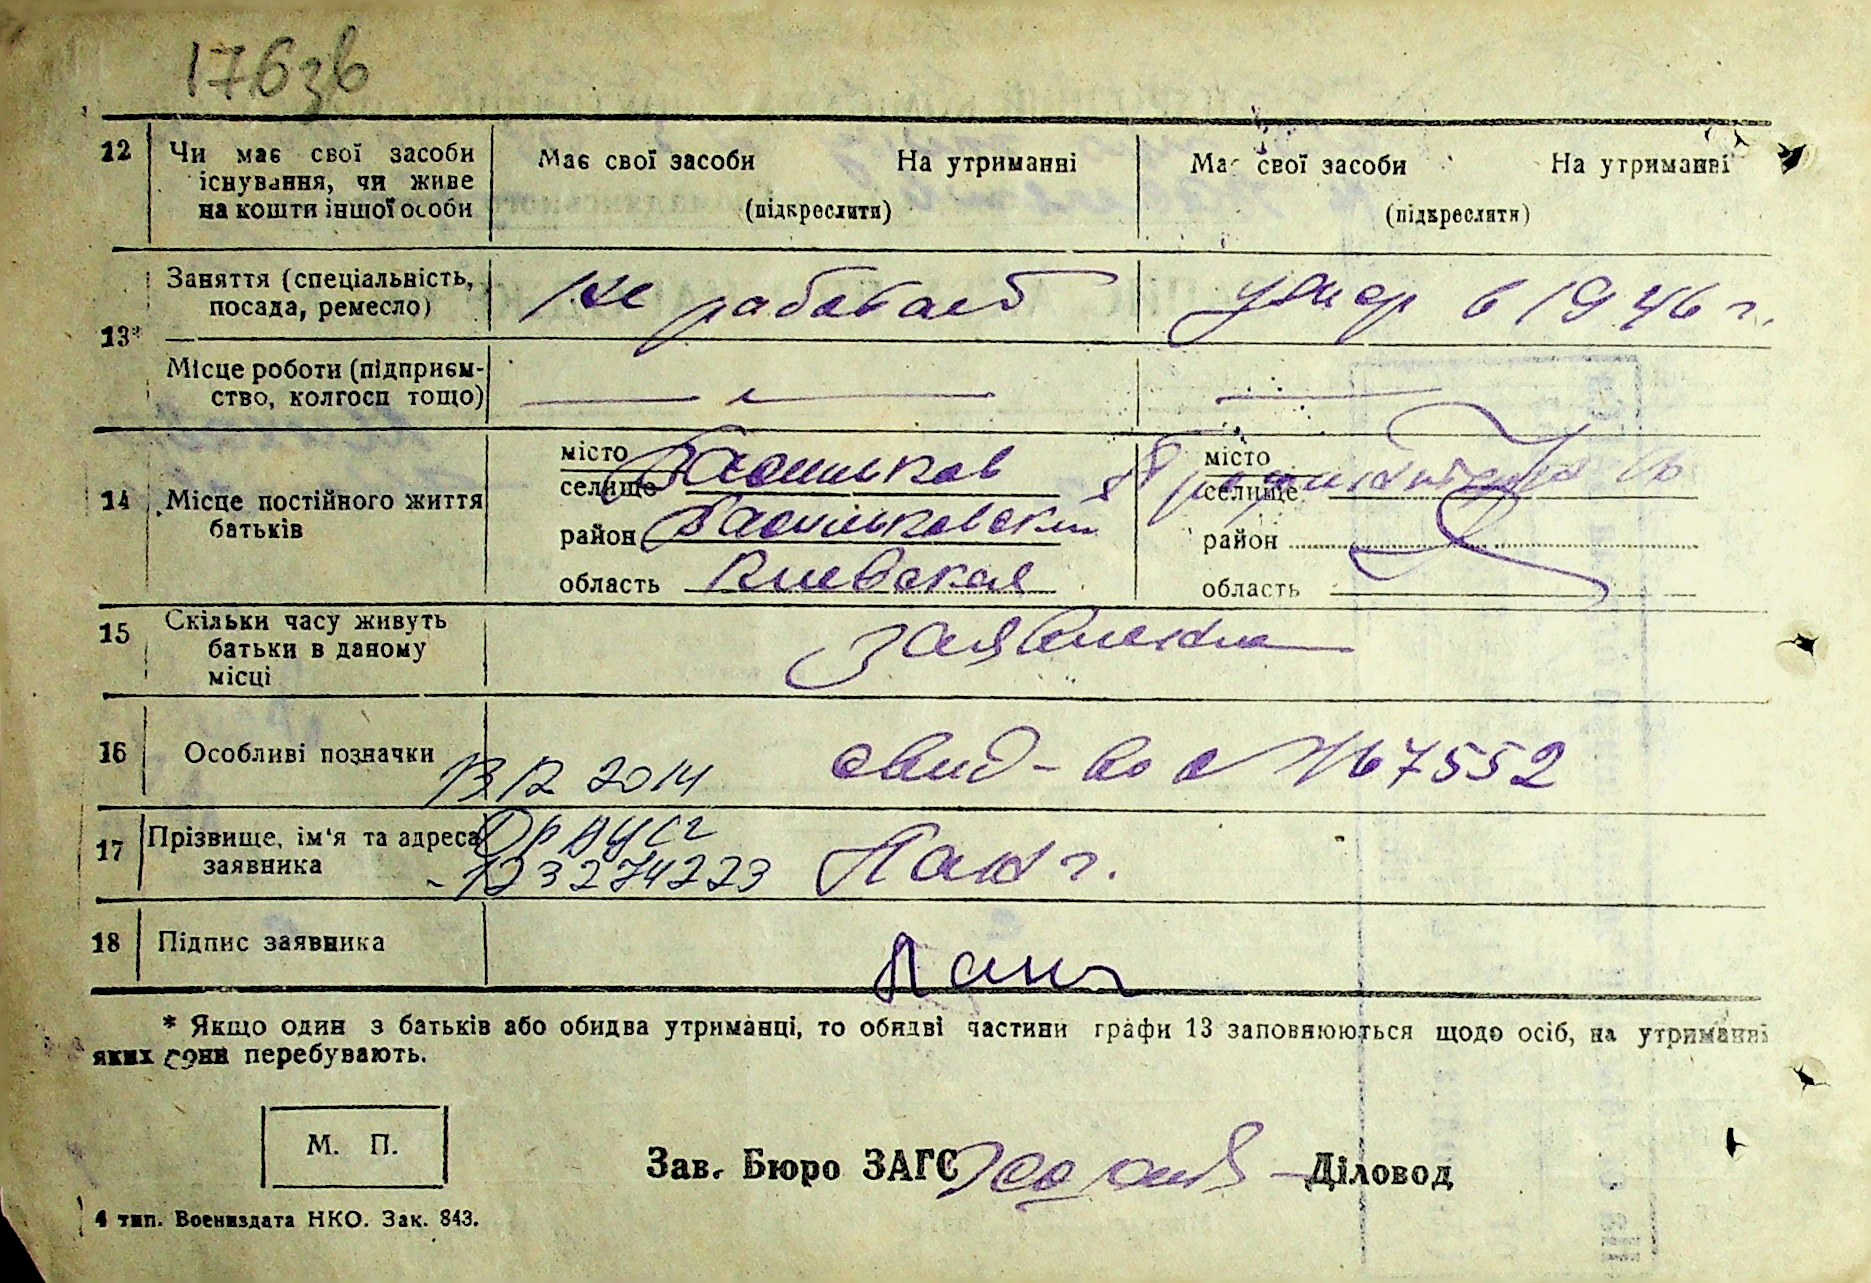 176зв
12 Чи має свої засоби існування, чи живе на кошти іншої особи
Має свої засоби На утриманні
(підкреслити)
Має свої засоби На утриманні
(підкреслити)
13* Заняття (спеціальність, посада, ремесло)
не работает
умер в 1946 г.
Місце роботи (підприєм-
ство, колгосп тощо)
14 Місце постійного життя
батьків
місто
селище Васильков
район Васильковский
область Киевская
місто
селище
район
область
15 Скільки часу живуть
батьки в даному
місці
16 Особливі позначки
13 12 2014
свид-во с № 67552
17 Прізвище, ім'я та адреса
заявника
ДРАЦСг
-123274223
18 Підпис заявника
* Якщо один з батьків або обидва утриманці, то обидві частини графи 13 заповнюються щодо осіб, на утриманні
яких вони перебувають.
М. П.
Зав. Бюро ЗАГС
Діловод
4 тип. Воениздата НКО. Зак. 843.